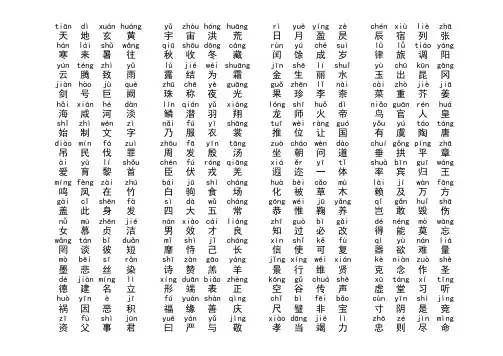 tiān dì xuán huáng yǔ zhòu hóng huāng rì yuè yíng zè chén xiù liè zhā
天 地 玄 黄 宇 宙 洪 荒 日 月 盈 昃 辰 宿 列 张
hán lái shǔ wǎng qiū shōu dōng cáng rùn yú ché suì lǜ lǚ tiáo yáng
寒 来 暑 往 秋 收 冬 藏 闰 馀 成 岁 律 吕 调 阳
yún téng zhì yǔ lù jié wéi shuāng jīn shē lì shuǐ yù chū kūn gāng
云 腾 致 雨 露 结 为 霜 金 生 丽 水 玉 出 昆 冈
jiàn hào jù què zhū chē yè guāng guǒ zhēn lǐ nài cài zhò jiè jiā
剑 号 巨 阙 珠 称 夜 光 果 珍 李 柰 菜 重 芥 姜
hǎi xián hé dàn lín qián yǔ xiáng lóng shī huǒ dì niǎo guān rén huá
海 咸 河 淡 鳞 潜 羽 翔 龙 师 火 帝 鸟 官 人 皇
shǐ zhì wén zì nǎi fú yī shāng tuī wèi ràng guó yǒu yú táo táng
始 制 文 字 乃 服 衣 裳 推 位 让 国 有 虞 陶 唐
diào mín fá zuì zhōu fā yīn tāng zuò cháo wèn dào chuí gǒng píng zhā
吊 民 伐 罪 周 发 殷 汤 坐 朝 问 道 垂 拱 平 章
ài yù lí shǒu chén fú róng qiāng xiá ěr yī tǐ shuà bīn guī wáng
爱 育 黎 首 臣 伏 戎 羌 遐 迩 一 体 率 宾 归 王
míng fèng zài zhú bái jū shí chǎng huà bèi cǎo mù lài jí wàn fāng
鸣 凤 在 竹 白 驹 食 场 化 被 草 木 赖 及 万 方
gài cǐ shēn fà sì dà wǔ cháng gōng wéi jū yǎng qǐ gǎn huǐ shāng
盖 此 身 发 四 大 五 常 恭 惟 鞠 养 岂 敢 毁 伤
nǚ mù zhēn jié nán xiào cái liáng zhī guò bì gǎi dé néng mò wàng
女 慕 贞 洁 男 效 才 良 知 过 必 改 得 能 莫 忘
wǎng tán bǐ duǎn mǐ shì jǐ cháng xìn shǐ kě fù qì yù nán liáng
罔 谈 彼 短 靡 恃 己 长 信 使 可 复 器 欲 难 量
mò bēi sī rǎn shī zàn gāo yáng jǐng xíng wéi xián kè niàn zuò shèng
墨 悲 丝 染 诗 赞 羔 羊 景 行 维 贤 克 念 作 圣
dé jiàn míng lì xíng duān biǎo zhèng kōng gǔ chuá shēng xū táng xí tīng
德 建 名 立 形 端 表 正 空 谷 传 声 虚 堂 习 听
huò yīn è jī fú yuán shàn qìng chǐ bì fēi bǎo cùn yīn shì jìng
祸 因 恶 积 福 缘 善 庆 尺 璧 非 宝 寸 阴 是 竞
zī fù shì jūn yuē yán yǔ jìng xiào dāng jié lì zhō zé jìn mìng
资 父 事 君 曰 严 与 敬 孝 当 竭 力 忠 则 尽 命